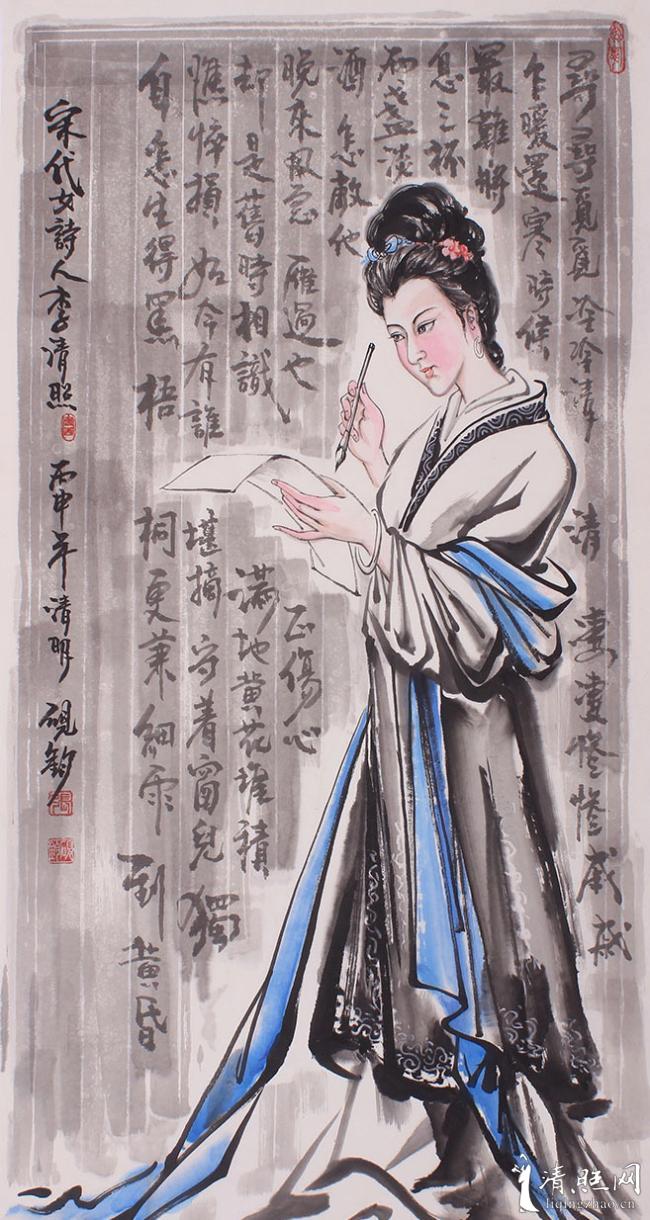 尋尋覓覓冷冷清清凄凄慘慘戚戚
乍暖還寒時候
最難將
息三杯
兩盞淡
酒怎敵他
晚來風急雁過也正傷心
却是舊時相識滿地黄花堆積
憔悴損如今有誰堪摘守着窗兒獨
自怎生得黑梧桐更兼細雨到黄昏
宋代女詩人李清照 丙申年清明 硯鈞
清照网
liqingzhao.cn